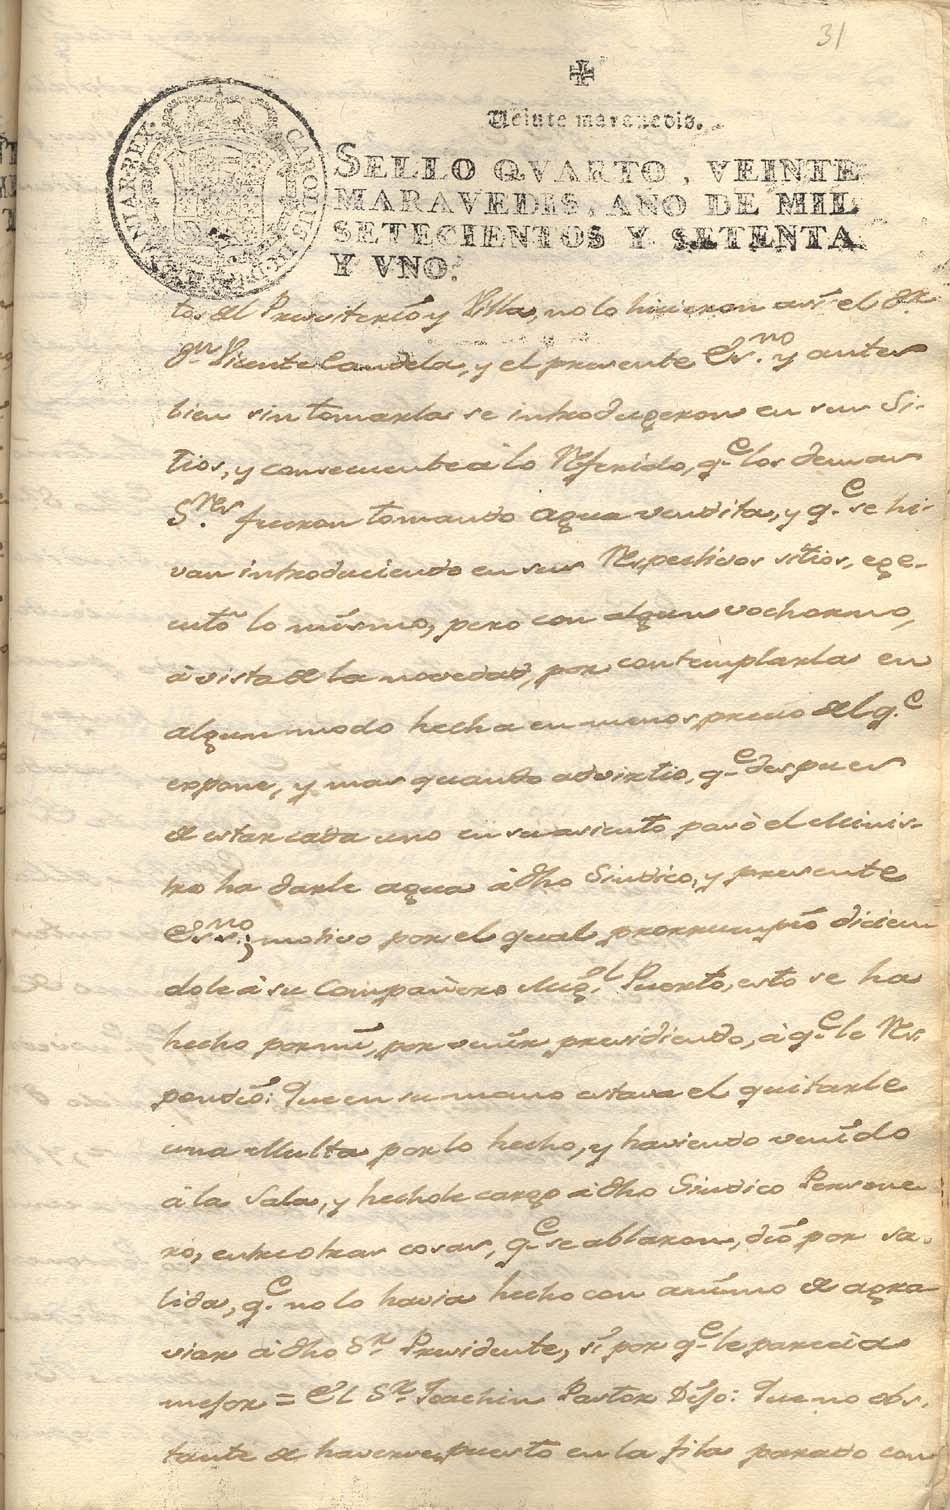 31
Veinte maravedis.
SELLO QVARTO, VEINTE
MARAVEDIS, AÑO DE MIL
SETECIENTOS Y SETENTA
Y VNO.
CAROLUS III D G
HISPANIAR REX
tos del Presviterio y Villa, no lo hicieron asi el Sr.
Dn Vicente Candela, y el presente Essno. y antes
bien sin tomarlas se introdugeron en sus Si-
tios, y consecuente à lo Referido, q.e los demas
S.res fueron tomando agua vendita, y q.e se hi-
van introduciendo en sus Respectivos sitios, ege-
cutó lo mismo, pero con algun vochorno,
à vista de la novedad, por contemplarla en
algun modo hecha en menos precio del q.e
expone, y mas quando advirtio, q.e despues
de estar cada uno en su asiento pasó el Minis-
tro ha darle agua à dho Sindico, y presente
Essno.; motivo por el qual prorrumpió dicien
dole à su Compañero Mig.l Puerto, esto se ha
hecho por mi, por venir presidiendo, à q.e le Res
pondió: Que en su mano estava el quitarle
una Multa por lo hecho, y haviendo venido
à la Sala, y hechole cargo à dho Sindico Persone-
ro, entre otras cosas, q.e se ablaron, dió por sa-
lida, q.e no lo havia hecho con animo de agra-
viar à dho Sr Presidente, si por q.e le parecia
mejor = El Sr Joachin Pastor Dijo: Que no obs-
tante de haverse puesto en la fila parado con